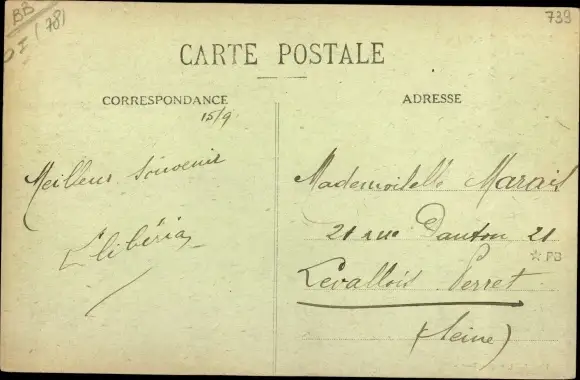 BB
(78)
739
CARTE POSTALE
CORRESPONDANCE
ADRESSE
15/9
Meilleur Souvenir
Mademoiselle Marais
21 rue Danton 21
☆ PB
Levallois Perret
(Seine)